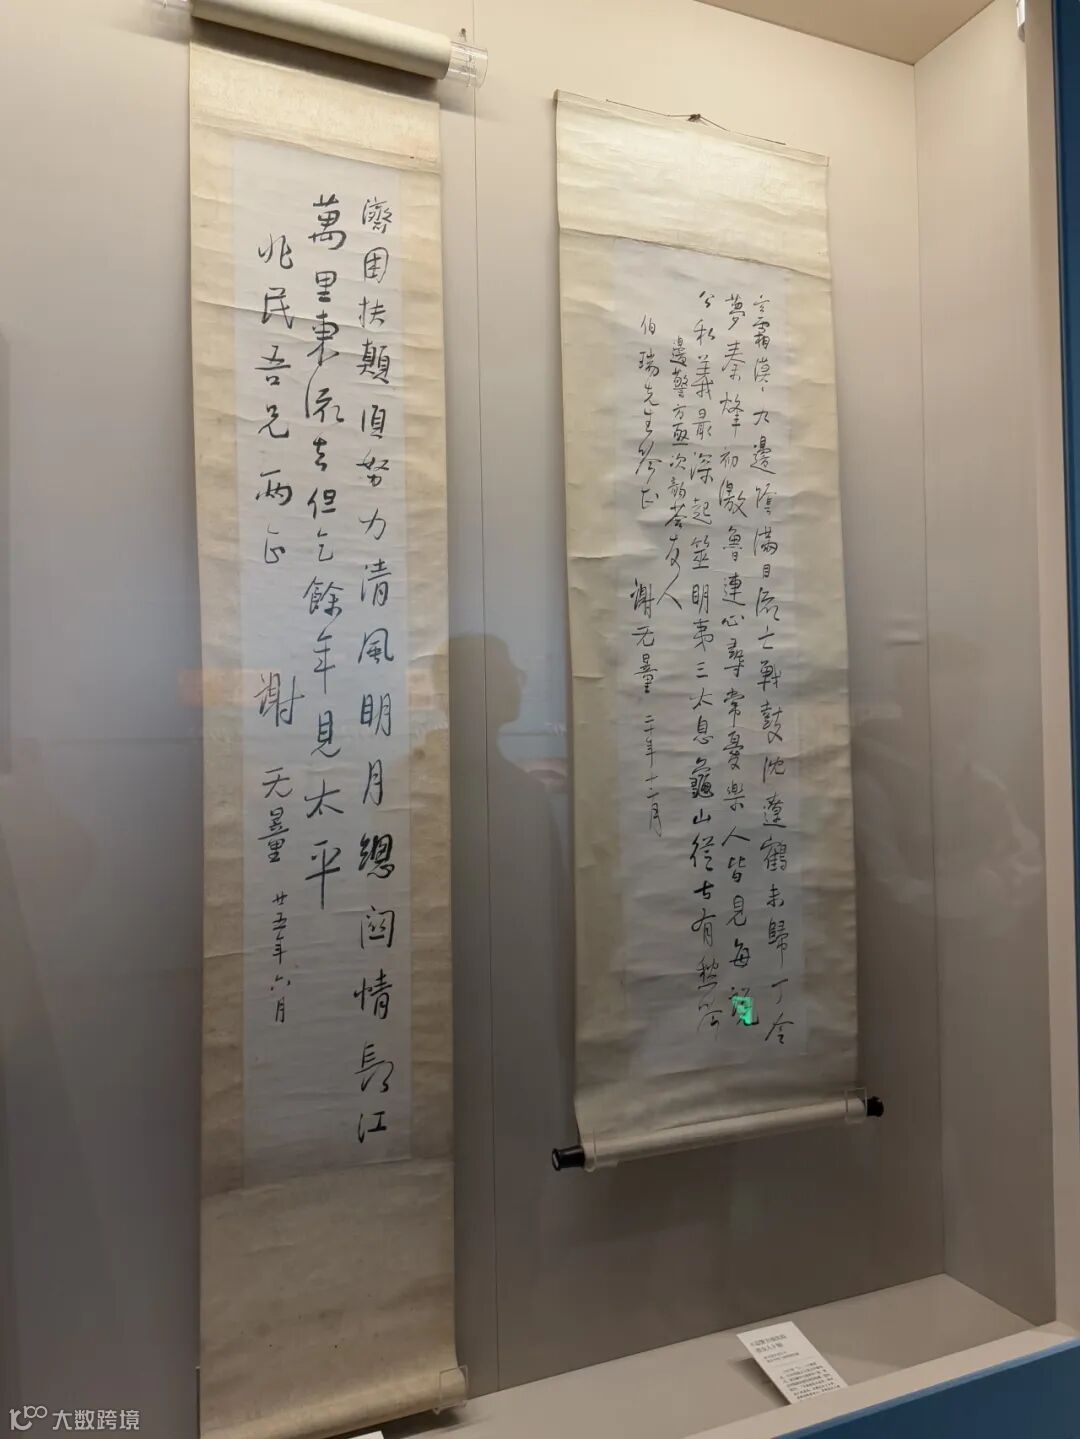 濟困扶顛須努力清風明月總關情長江
萬里東流去但乞餘年見太平
兆民吾兄兩正 謝无量 廿五年六月
霜漠漠九邊陰滿目流亡戰鼓沈遼鶴未歸丁令
夢秦烽初激魯連心尋常憂樂人皆見每說
公私義最深起筮明夷三太息龜山從古有愁吟
邊警方亟次韵荅友人
伯瑞先生吟正 謝无量 二十年十二月
大数跨境